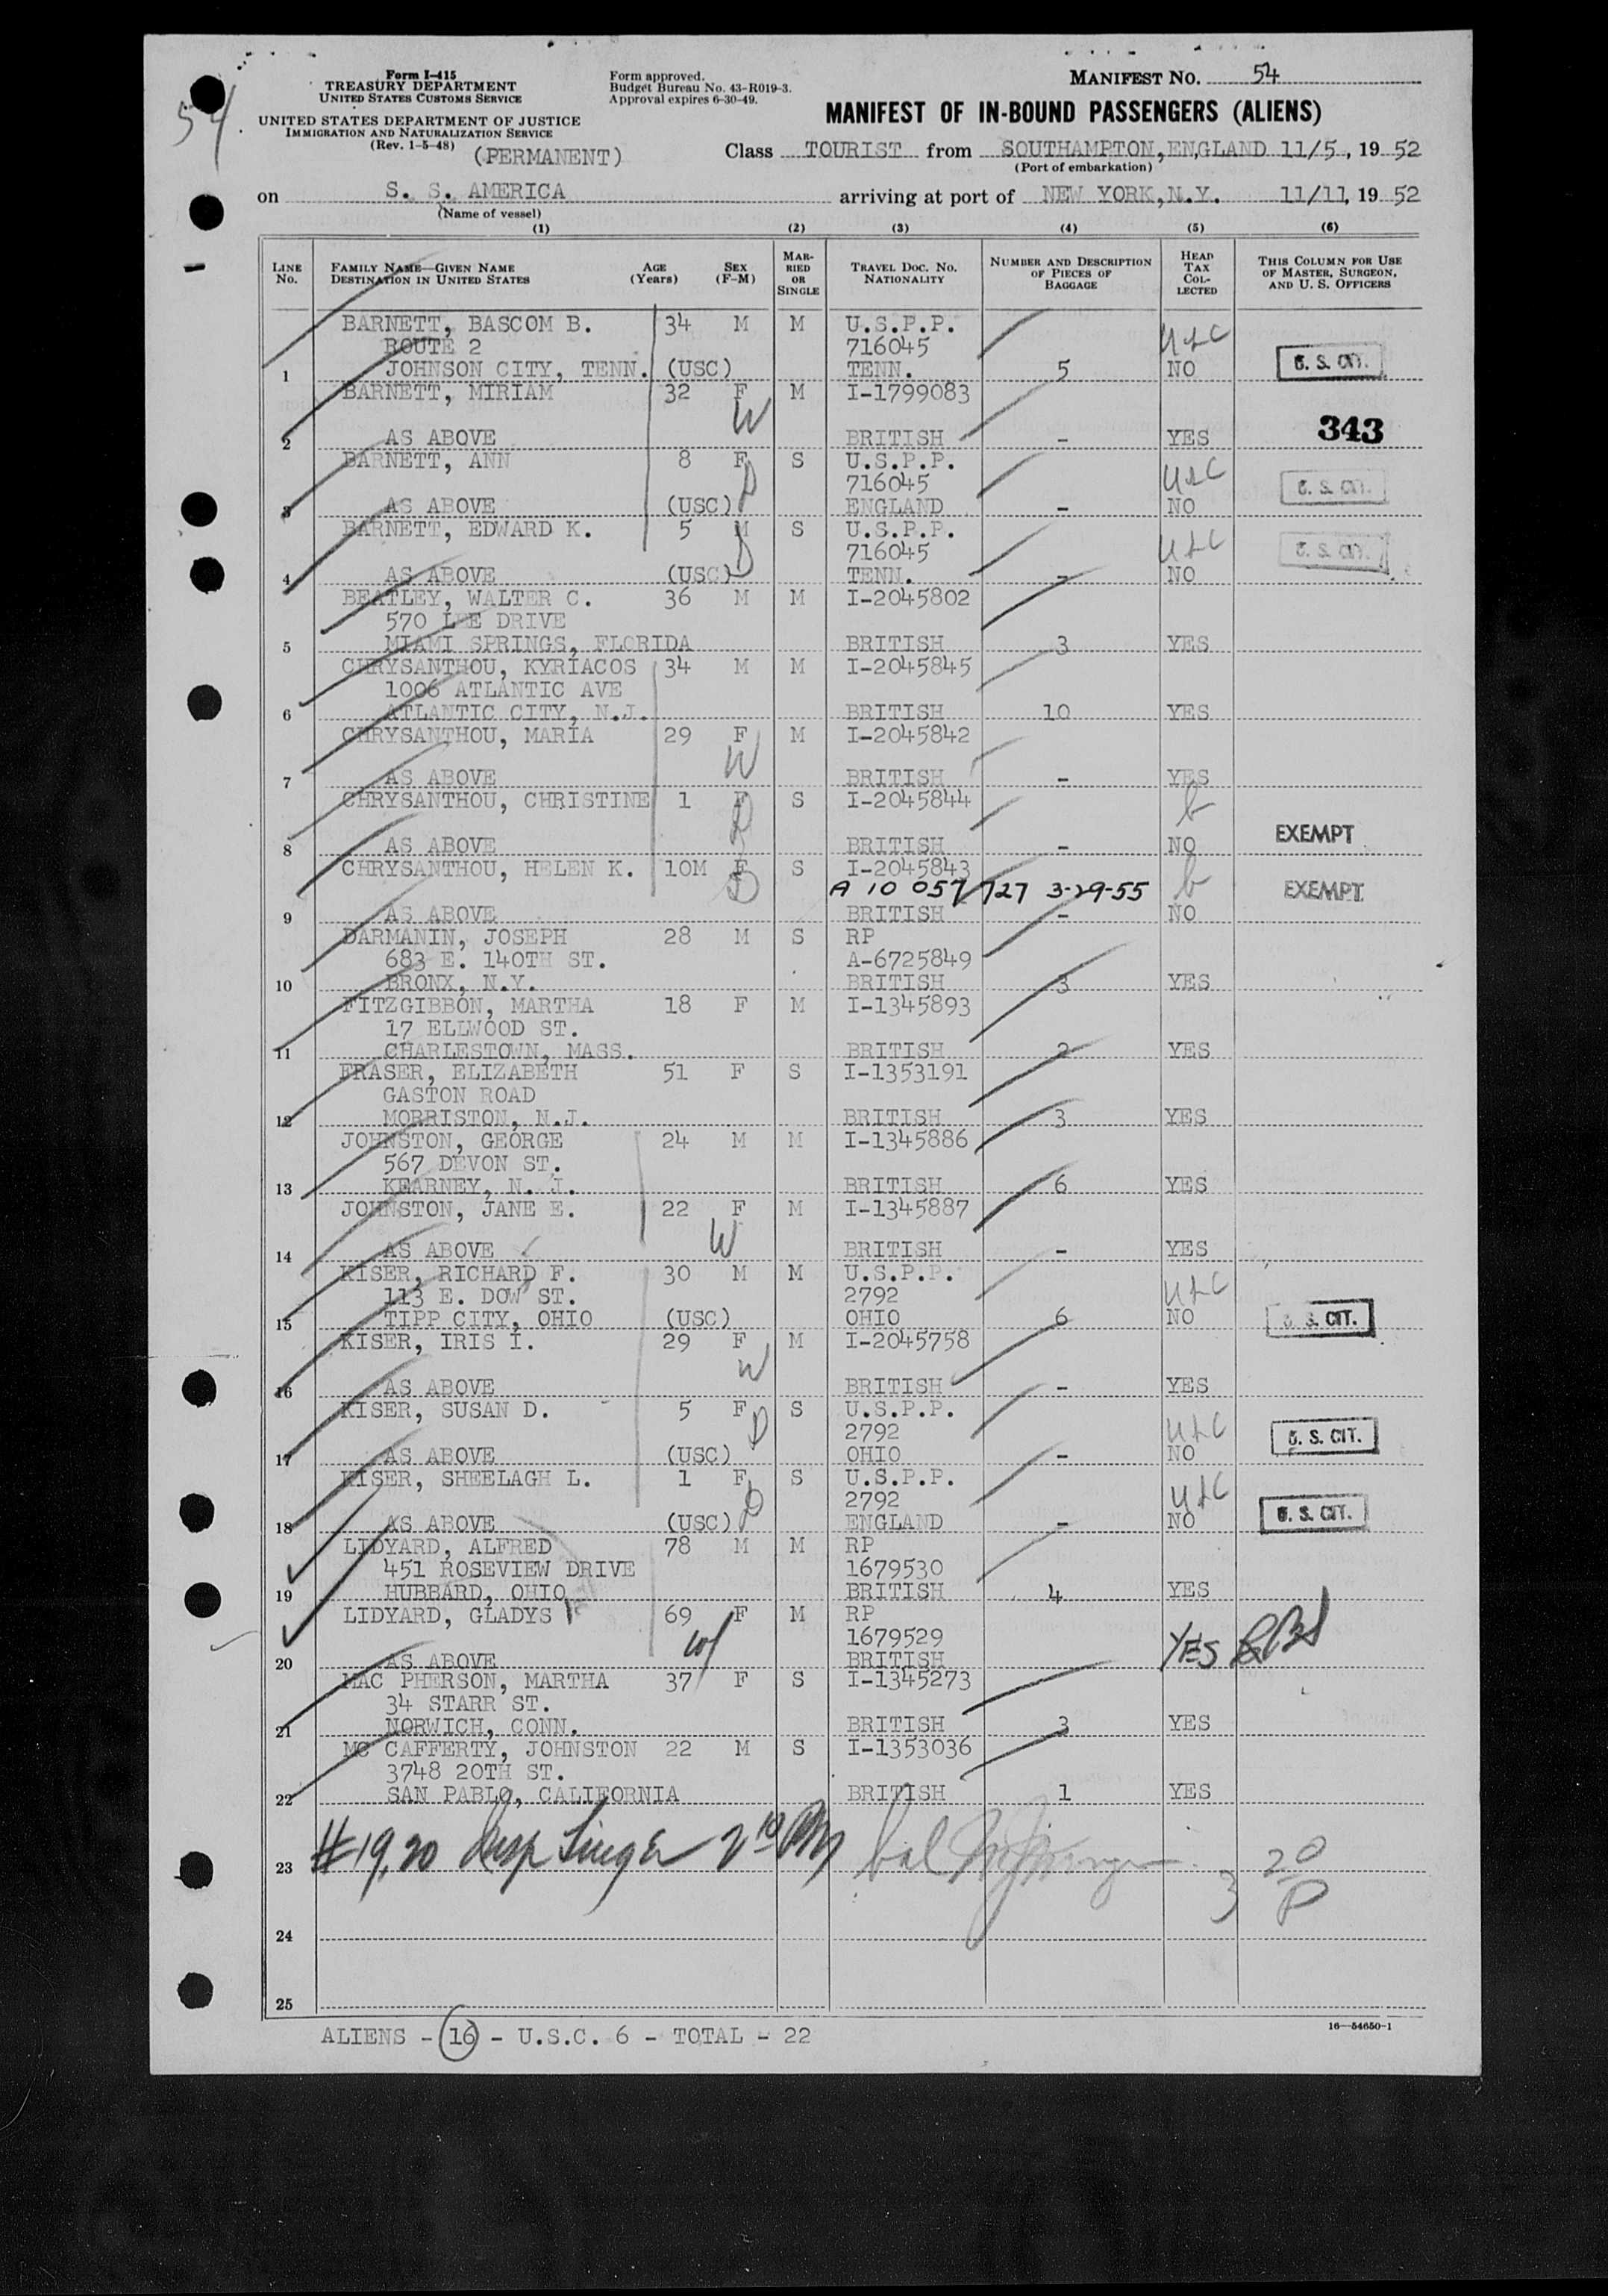 54
Form I-415
TREASURY DEPARTMENT
UNITED STATES CUSTOMS SERVICE
UNITED STATES DEPARTMENT OF JUSTICE
IMMIGRATION AND NATURALIZATION SERVICE
(Rev. 1-5-48)
(PERMANENT)
Form approved.
Budget Bureau No. 43-R019-3.
Approval expires 6-30-49.
MANIFEST NO. 54
MANIFEST OF IN-BOUND PASSENGERS (ALIENS)
Class TOURIST from SOUTHAMPTON, ENGLAND 11/5, 19 52
(Port of embarkation)
on S. S. AMERICA arriving at port of NEW YORK, N.Y. 11/11, 19 52
(Name of vessel)
(1) (2) (3) (4) (5) (6)
LINE NO. FAMILY NAME—GIVEN NAME DESTINATION IN UNITED STATES AGE (Years) SEX (F-M) MARRIED OR SINGLE TRAVEL DOC. NO. NATIONALITY NUMBER AND DESCRIPTION OF PIECES OF BAGGAGE HEAD TAX COLLECTED THIS COLUMN FOR USE OF MASTER, SURGEON, AND U. S. OFFICERS
BARNETT, BASCOM B. 34 M M U.S.P.P.
ROUTE 2 716045 USC
1 JOHNSON CITY, TENN. (USC) TENN. 5 NO U. S. CIT.
BARNETT, MIRIAM 32 F M I-1799083
W
2 AS ABOVE BRITISH - YES 343
BARNETT, ANN 8 F S U.S.P.P.
D 716045 USC
3 AS ABOVE (USC) ENGLAND - NO U. S. CIT.
BARNETT, EDWARD K. 5 M S U.S.P.P.
D 716045 USC
4 AS ABOVE (USC) TENN. - NO U. S. CIT.
BEATLEY, WALTER C. 36 M M I-2045802
570 LEE DRIVE
5 MIAMI SPRINGS, FLORIDA BRITISH 3 YES
CHRYSANTHOU, KYRIACOS 34 M M I-2045845
1006 ATLANTIC AVE
6 ATLANTIC CITY, N.J. BRITISH 10 YES
CHRYSANTHOU, MARIA 29 F M I-2045842
W
7 AS ABOVE BRITISH - YES
CHRYSANTHOU, CHRISTINE 1 F S I-2045844
D b
8 AS ABOVE BRITISH - NO EXEMPT
CHRYSANTHOU, HELEN K. 10M F S I-2045843
D A 10 057 727 3-29-55 b EXEMPT
9 AS ABOVE BRITISH - NO
DARMANIN, JOSEPH 28 M S RP
683 E. 140TH ST. A-6725849
10 BRONX, N.Y. BRITISH 3 YES
FITZGIBBON, MARTHA 18 F M I-1345893
17 ELLWOOD ST.
11 CHARLESTOWN, MASS. BRITISH 2 YES
FRASER, ELIZABETH 51 F S I-1353191
GASTON ROAD
12 MORRISTON, N.J. BRITISH 3 YES
JOHNSTON, GEORGE 24 M M I-1345886
567 DEVON ST.
13 KEARNEY, N. J. BRITISH 6 YES
JOHNSTON, JANE E. 22 F M I-1345887
W
14 AS ABOVE BRITISH - YES
KISER, RICHARD F. 30 M M U.S.P.P.
113 E. DOW ST. 2792 USC
15 TIPP CITY, OHIO (USC) OHIO 6 NO U. S. CIT.
KISER, IRIS I. 29 F M I-2045758
W
16 AS ABOVE BRITISH - YES
KISER, SUSAN D. 5 F S U.S.P.P.
D 2792 USC
17 AS ABOVE (USC) OHIO - NO U. S. CIT.
KISER, SHEELAGH L. 1 F S U.S.P.P.
D 2792 USC
18 AS ABOVE (USC) ENGLAND - NO U. S. CIT.
LIDYARD, ALFRED 78 M M RP
451 ROSEVIEW DRIVE 1679530
19 HUBBARD, OHIO BRITISH 4 YES
LIDYARD, GLADYS 69 F M RP
W 1679529 YES
20 AS ABOVE BRITISH
MAC PHERSON, MARTHA 37 F S I-1345273
34 STARR ST.
21 NORWICH, CONN. BRITISH 3 YES
MC CAFFERTY, JOHNSTON 22 M S I-1353036
3748 20TH ST.
22 SAN PABLO, CALIFORNIA BRITISH 1 YES
23 #19,20 Insp Singer 2 10 PM bal 3 20 P
24
25
ALIENS - 16 - U.S.C. 6 - TOTAL - 22
16—54650-1